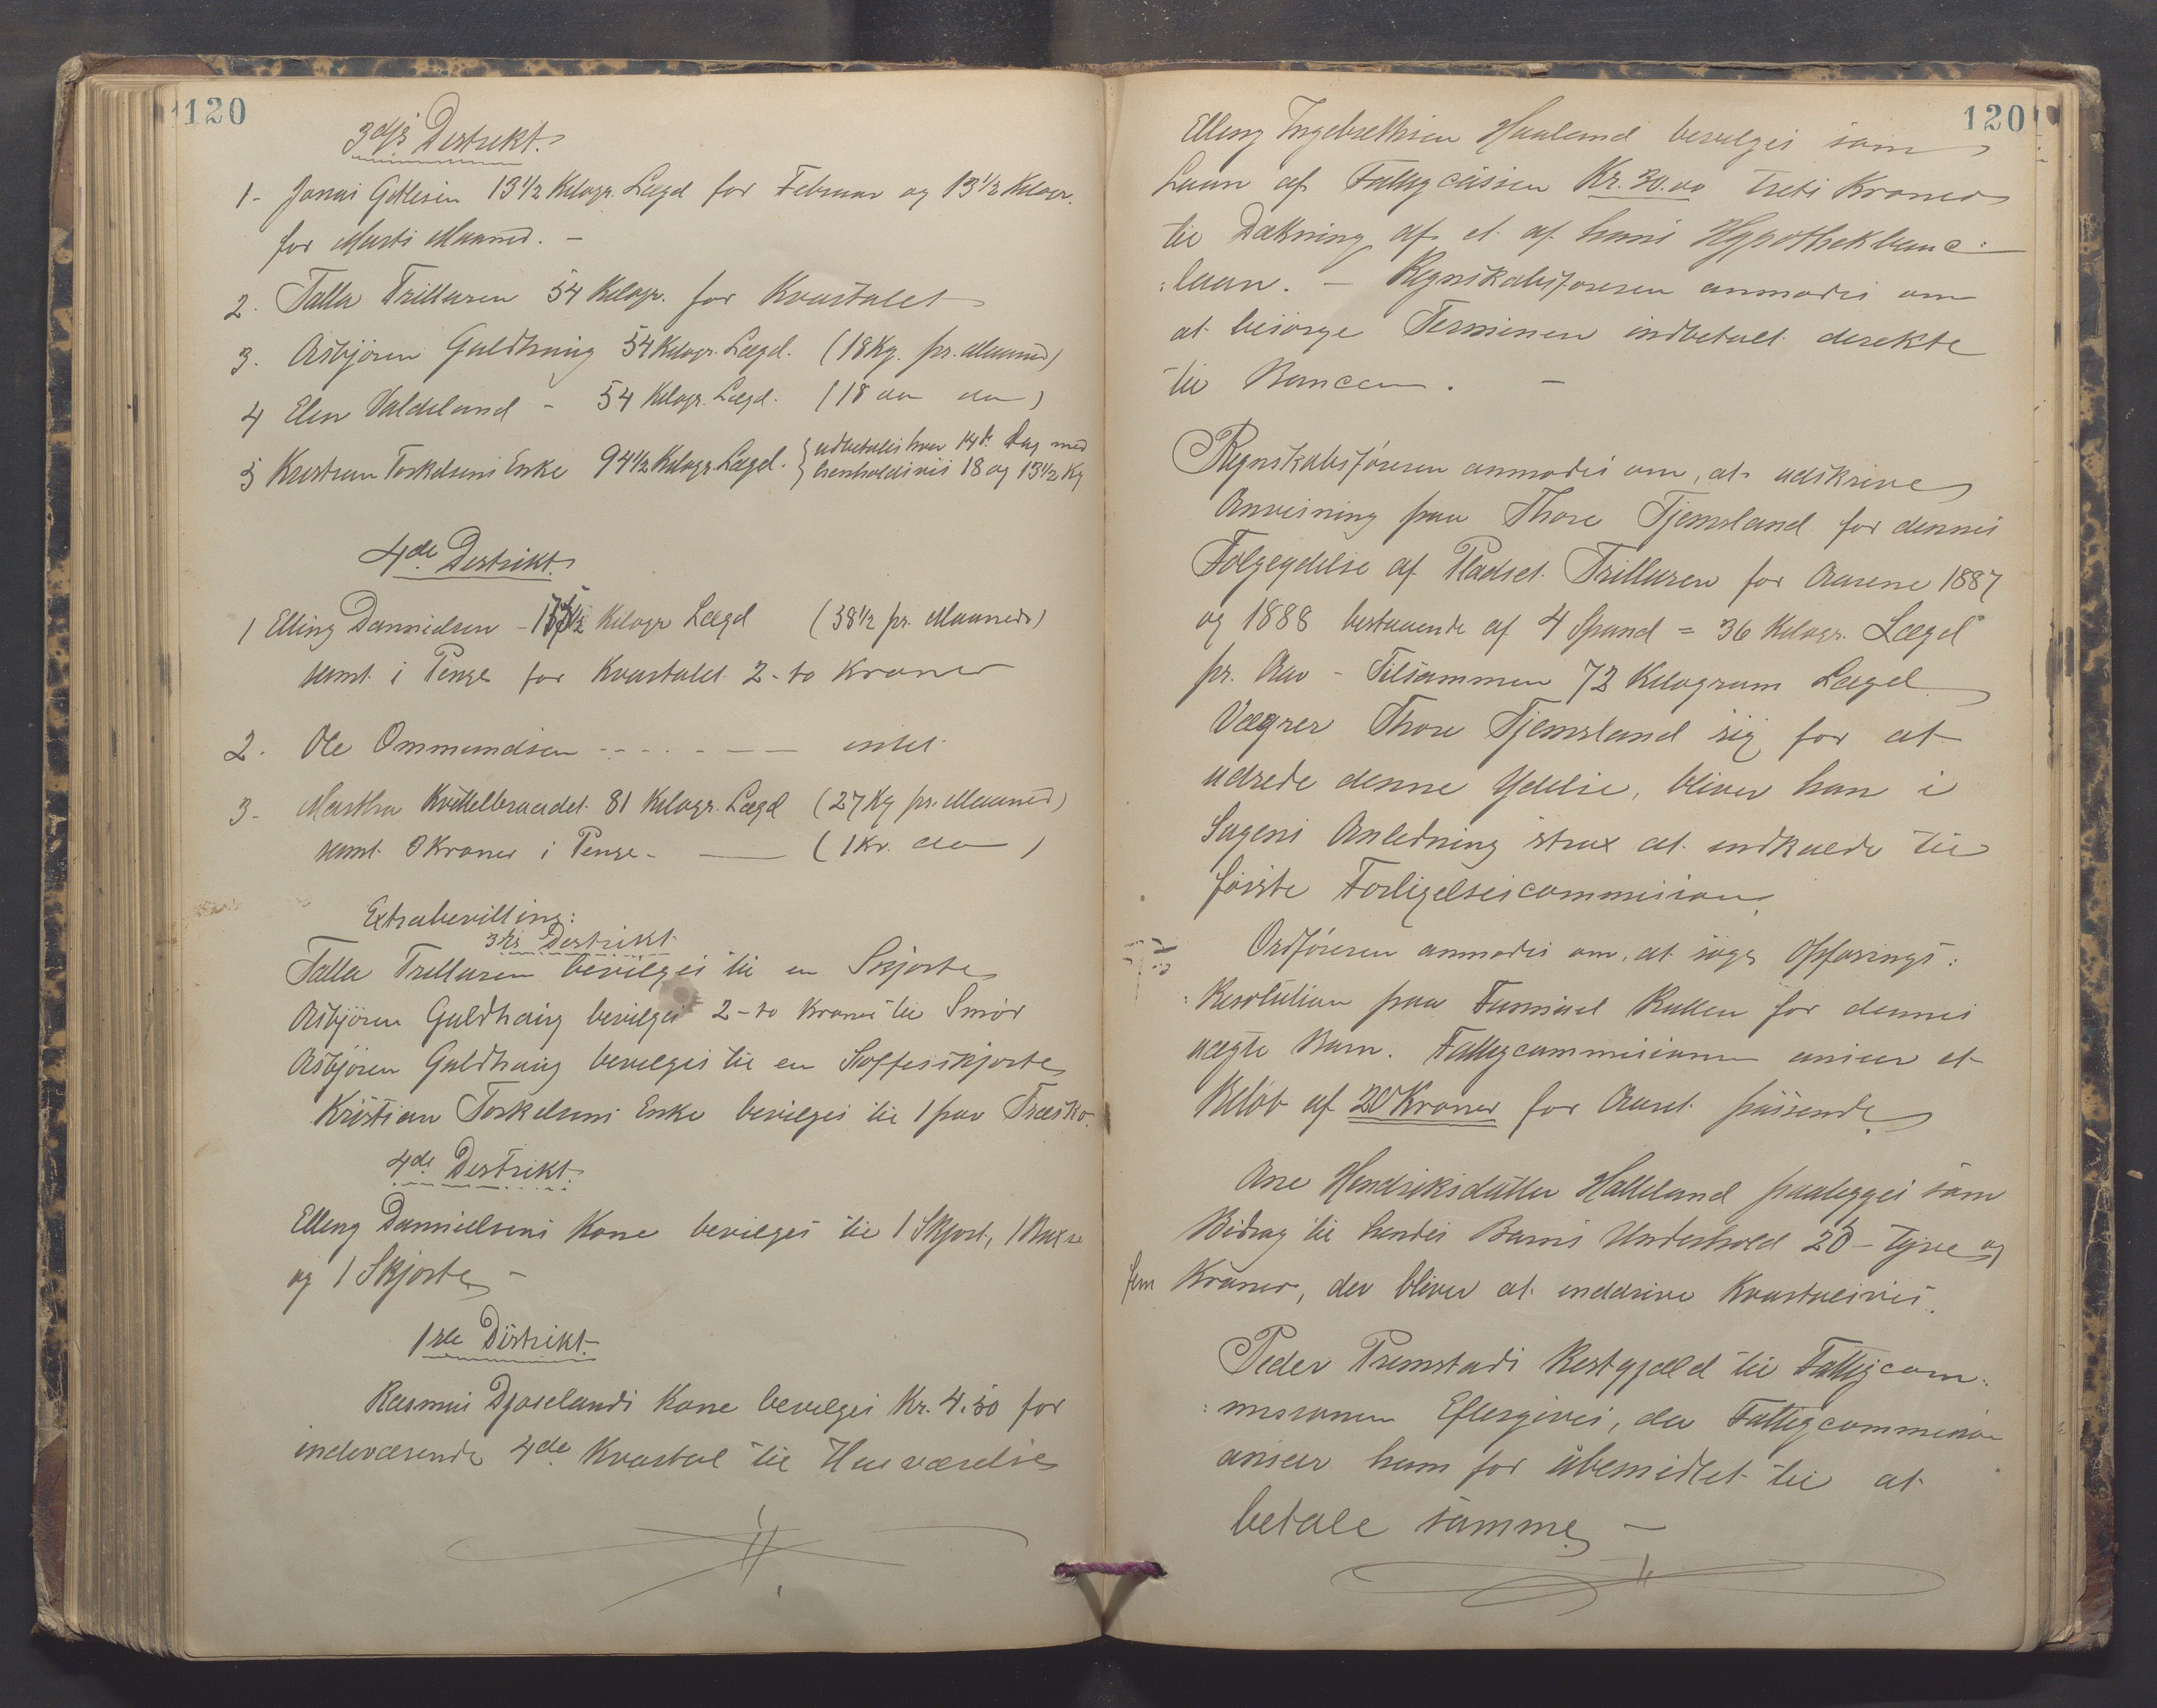 120
3dje Destrekt.
1- Jonas Gotlesen 13 1/2 Kilogr. Lægd for Februar og 13 1/2 Kilogr.
for Marts Maaned. -
2. Talla Trillaren 54 Kilogr. for Kvartalet
3. Asbjören Guldhaug 54 Kilogr. Lægd. (18 Kg. pr. Maaned)
4 Elen Valdeland - 54 Kilogr. Lægd. (18 do do)
5 Kristian Torkelsens Enke 94 1/2 Kilogr. Lægd. { udbetales hver 14de Dag med
henholdsvis 18 og 13 1/2 Kg
4de Destrikt.
1 Elling Danielsen - Kilogr Lægd (38 1/2 pr. Maaned)
samt i Penge for Kvartalet 2 - to Kroner
2. Ole Ommundsen - - - - - intet
3. Martha Kvittelbraadet 81 Kilogr. Lægd (27 Kg pr. Maaned)
samt 3 Kroner i Penge - (1 Kr. do)
Extrabevilling:
3die Destrikt
Talla Trillaren bevilges til en Skjorte
Asbjören Guldhaug bevilges 2 - to Kroner til Smör
Asbjören Guldhaug bevilges til en Stoffesskjorte
Kristian Torkelsens Enke bevilges til 1 par Træsko.
4de Destrikt.
Elling Danielsens Kone bevilges til 1 Skjort, 1 Buxe
og 1 Skjorte -
1ste Distrikt.
Rasmus Djoselands Kone bevilges Kr. 4.50 for
indeværende 4de Kvartal til Husværelse
120
Elling Ingebrethsen Haaland bevilges som
Laan af Fattigcassen Kr. 30.00 Treti Kroner
til Dækning af et af hans Hypothekbanc:
:laan. - Regnskabsföreren anmodes om
at besörge Terminen indbetalt derekte
til Bancen. -
Regnskabsföreren anmodes om, at udskrive
Anvisning paa Thore Tjemsland for dennes
Fölgeydelse af Pladset Trillaren for Aarene 1887
og 1888 bestaaende af 4 Spand = 36 Kilogr. Lægd
pr. Aar - Tilsammen 72 Kilogram Lægd
Vægrer Thore Tjemsland sig for at
udrede denne Ydelse, bliver han i
Sagens Anledning strax at indkalde til
förste Forligelsescommission.
Ordföreren anmodes om, at söge Opfostrings:
:Resolution paa Rullen for dennes
uægte Barn. Fattigcommissionen anseer et
Belöb af 20 Kroner for Aaret passende.
Ane Hendriksdatter Hatteland paalegges som
Bidrag til hendes Barns Underhold 25 - Tyve og
fem Kroner, der bliver at inddrive Kvartalsvis.
Peder Tremstads Restgjæld til Fattigcom:
:missionen Eftergives, da Fattigcommission
anseer ham for übemidlet til at
betale samme. -